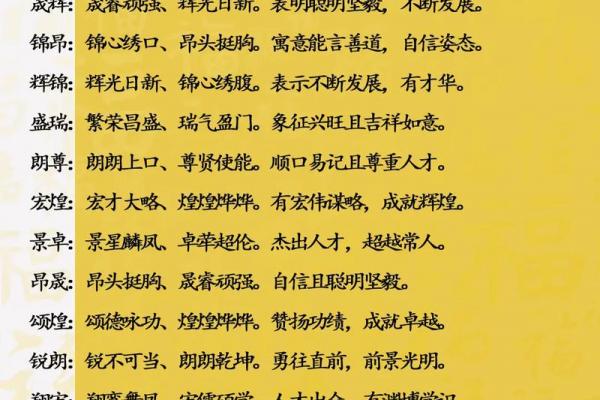 晟辉：晟睿顽强、辉光日新。表明聪明坚毅，不断发展。
锦昂：锦心绣口、昂头挺胸。寓意能言善道，自信姿态。
辉锦：辉光日新、锦心绣腹。表示不断发展，有才华。
盛瑞：繁荣昌盛、瑞气盈门。象征兴旺且吉祥如意。
朗尊：朗朗上口、尊贤使能。顺口易记且尊重人才。
宏煌：宏才大略、煌煌烨烨。有宏伟谋略，成就辉煌。
景卓：景星麟凤、卓荦超伦。杰出人才，超越常人。
昂晟：昂头挺胸、晟睿顽强。自信且聪明坚毅。
颂煌：颂德咏功、煌煌烨烨。赞扬功绩，成就卓越。
锐朗：锐不可当、朗朗乾坤。勇往直前，前景光明。